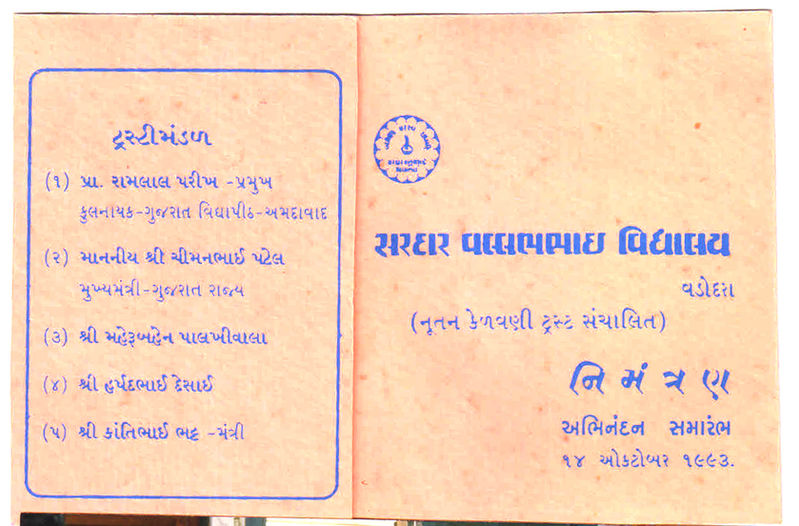 ટ્રસ્ટીમંડળ
(૧) પ્રા. રામલાલ પરીખ -પ્રમુખ
કુલનાયક-ગુજરાત વિદ્યાપીઠ-અમદાવાદ
(૨) માનનીય શ્રી ચીમનભાઈ પટેલ
મુખ્યમંત્રી-ગુજરાત રાજ્ય
(૩) શ્રી મહેરૂબહેન પાલખીવાલા
(૪) શ્રી હર્ષદભાઈ દેસાઈ
(૫) શ્રી કાંતિભાઈ ભટ્ટ -મંત્રી
સરદાર વલ્લભભાઇ વિદ્યાલય
વડોદરા
(નૂતન કેળવણી ટ્રસ્ટ સંચાલિત)
નિમંત્રણ
અભિનંદન સમારંભ
૧૪ ઓકટોબર ૧૯૯૩.